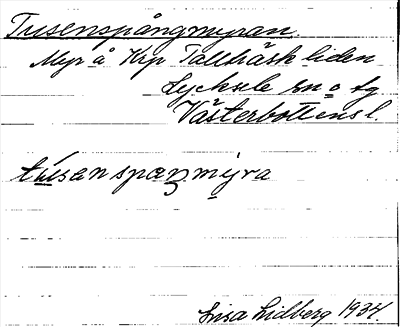 Tusenspångmyran.
Myr å Krp Tallträskliden
Lycksele sn o tg
Västerbottens l.
tusanspaŋmyra
Lisa Lidberg 1934